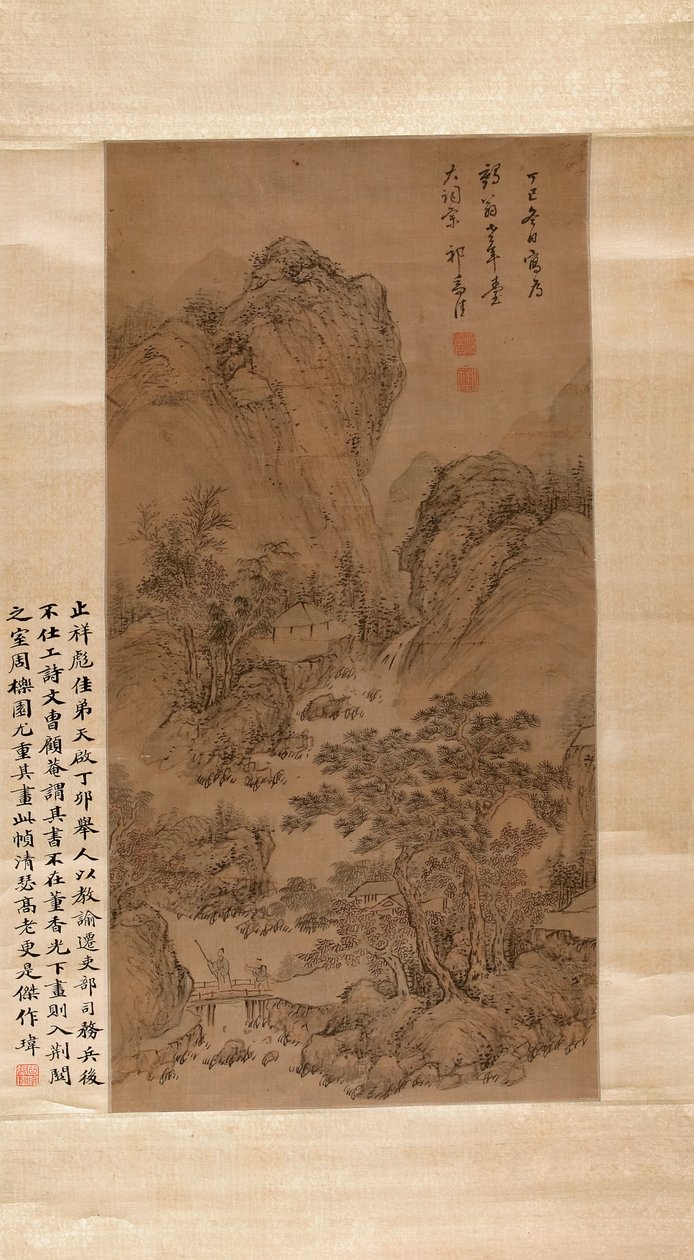 丁巳冬日寫為
翁老年臺
大詞宗 祁豸佳
止祥彪佳弟天啟丁卯舉人以教諭遷吏部司務兵後
不仕工詩文曹顧菴謂其書不在董香光下畫則入荊關
之室周櫟園尤重其畫此幀清瑟高老更是傑作瑋